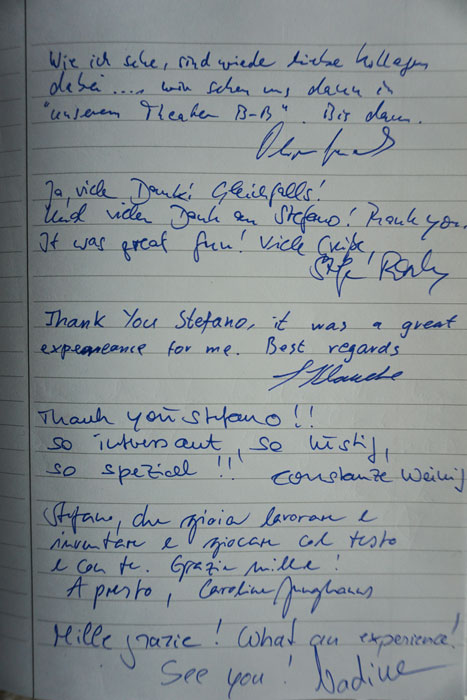 Wie ich sehe, sind wieder liebe Kollegen
dabei .... wir sehen uns dann in
"unserem Theater B-B". Bis dann.
Ja, viele Dank! Gleichfalls!
Und vielen Dank an Stefano! Thank you.
It was great fun! Viele Grüße,
Thank You Stefano, it was a great
experneance for me. Best regards
Thank you Stefano!!
so intressant, so lustig,
so speziell!! Constanze
Stefano, che gioia lavorare e
inventare e giocare col testo
e con te. Grazie mille!
A presto, Caroline Junghanns
Mille grazie! What an experience!
See you! Nadine